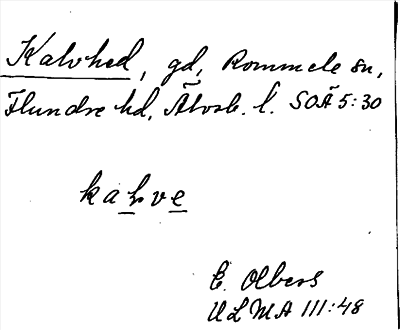 Kalvhed, gd, Rommele sn,
Flundre hd, Älvsb. l. SOÄ 5:30
kahve
E. Olbers
ULMA 111:48